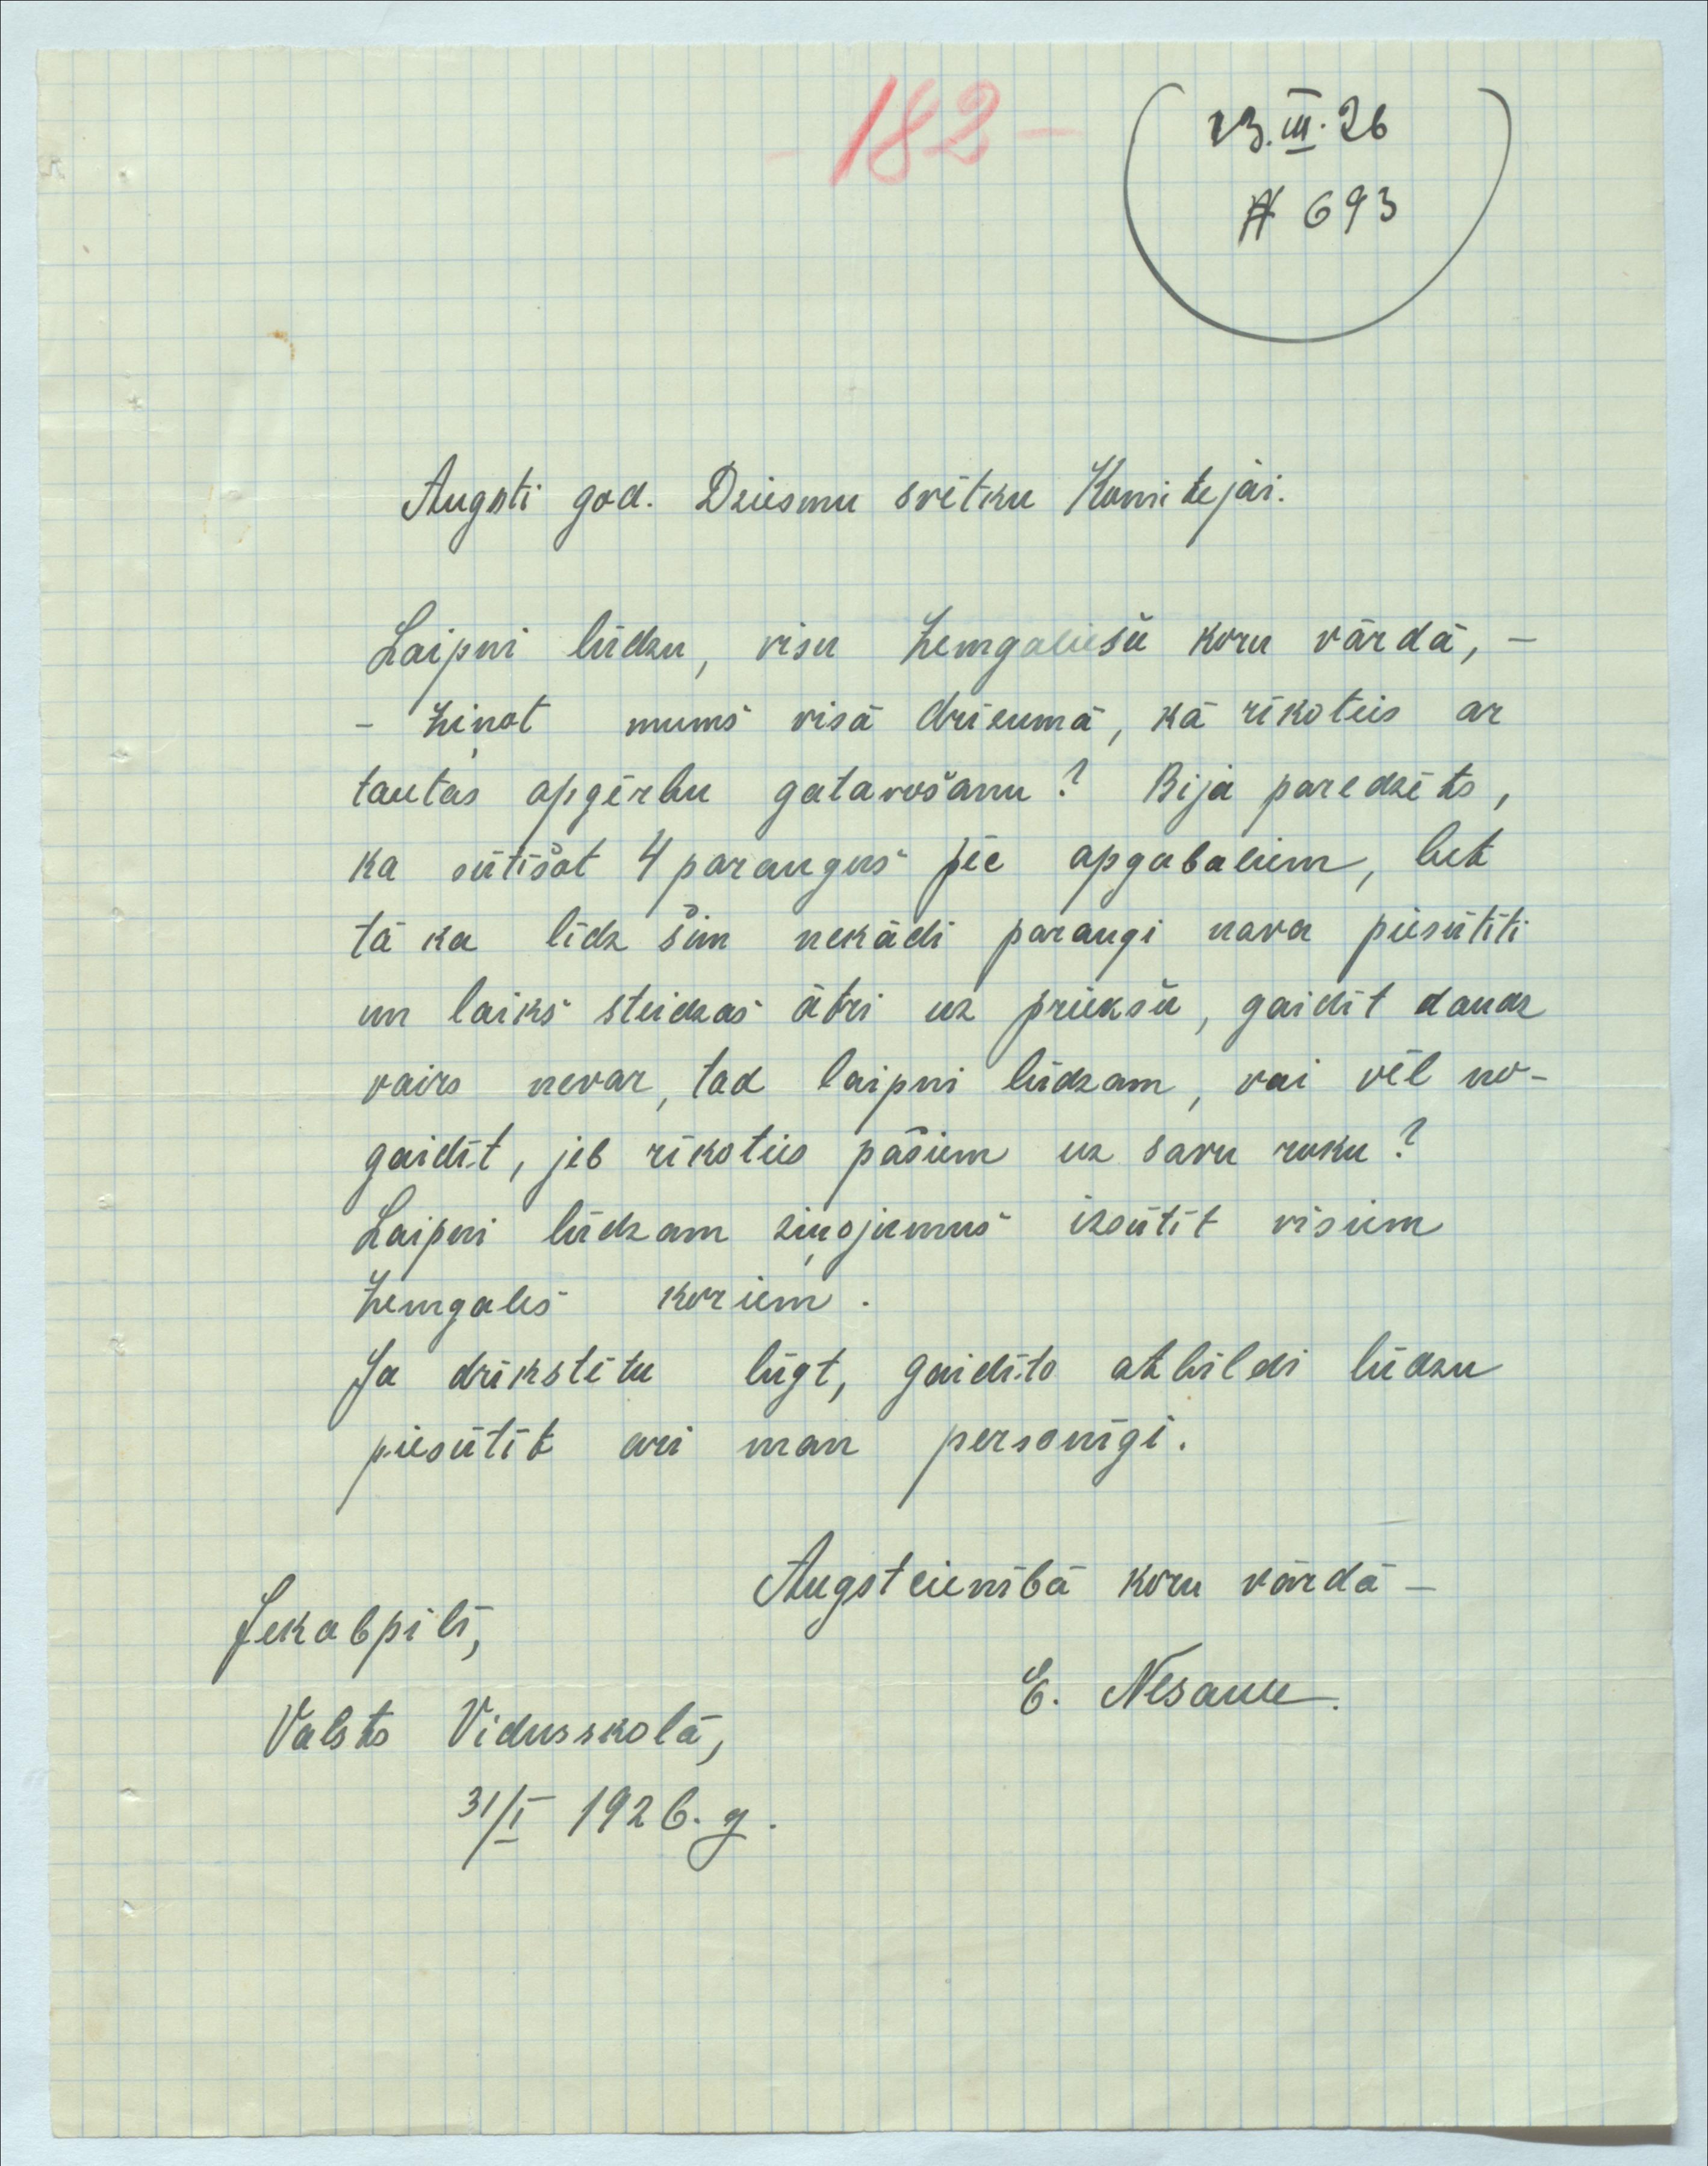 - 182 -
23.III.26
# 693
Augsti god. Dziesmu svētku Komitejai.
Laipni lūdzu, visu Zemgaliešu koru vārdā, -
- ziņot mums visā drīzumā, kā rīkoties ar
tautas apģērbu gatavošanu? Bija paredzēts,
ka sūtīšot 4 paraugus pēc apgabaliem, bet
tā ka līdz šim nekādi paraugi nava piesūtīti
un laiks steidzas ātri uz priekšu, gaidīt daudz
vairs nevar, tad laipni lūdzam, vai vēl no-
gaidīt, jeb rīkoties pašiem uz savu roku?
Laipni lūdzam ziņojumus izsūtīt visiem
Zemgales koriem.
Ja drīkstētu lūgt, gaidīto atbildi lūdzu
piesūtīt arī man personīgi.
Augstcienībā koru vārdā -
Jekabpilī,
E. Nesaule.
Valsts Vidusskolā,
31/I 1926. g.